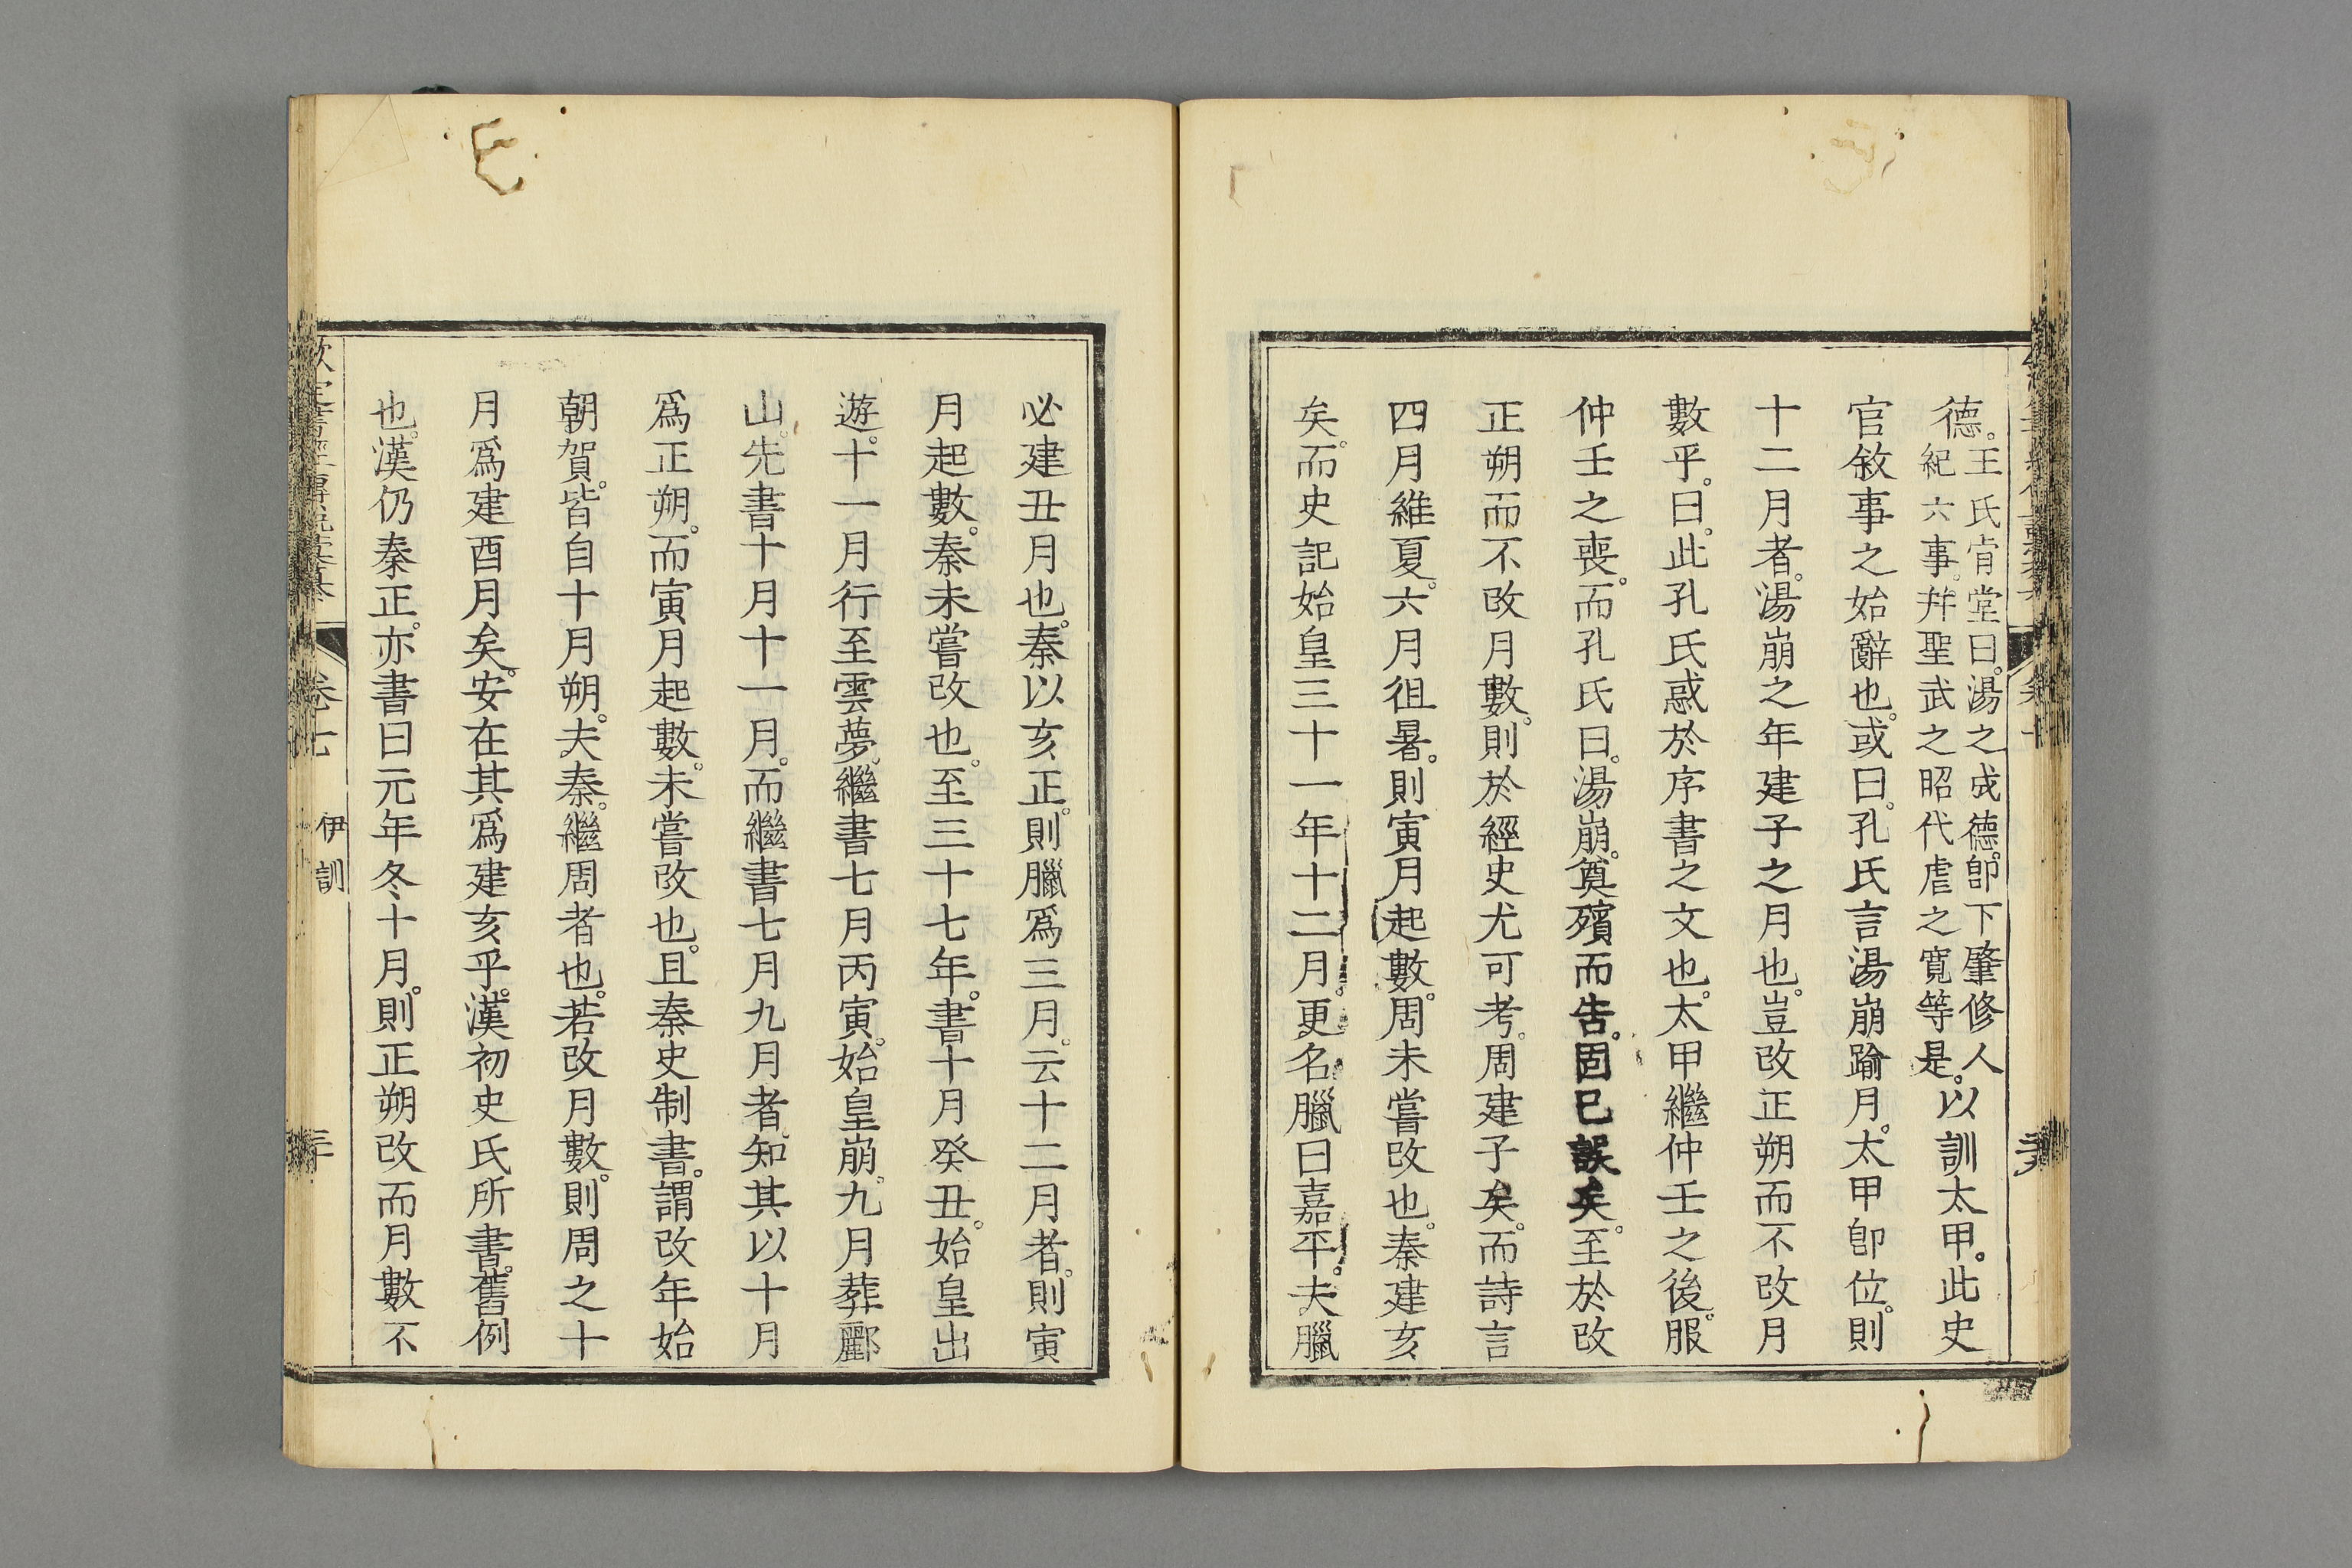 德。王氏肯堂曰。湯之成德。卽下肇修人
紀六事。幷聖武之昭代虐之寬等是。以訓太甲。此史
官敘事之始辭也。或曰。孔氏言湯崩踰月。太甲卽位。則
十二月者。湯崩之年建子之月也。豈改正朔而不改月
數乎。曰。此孔氏惑於序書之文也。太甲繼仲壬之後。服
仲壬之喪。而孔氏曰。湯崩。奠殯而告。固已誤矣。至於改
正朔而不改月數。則於經史尤可考。周建子矣。而詩言
四月維夏。六月徂暑。則寅月起數。周未嘗改也。秦建亥
矣。而史記始皇三十一年十二月。更名臘曰嘉平。夫臘
必建丑月也。秦以亥正。則臘爲三月。云十二月者。則寅
月起數。秦未嘗改也。至三十七年。書十月癸丑。始皇出
遊。十一月行至雲夢。繼書七月丙寅。始皇崩。九月葬酈
山。先書十月十一月。而繼書七月九月者。知其以十月
爲正朔。而寅月起數。未嘗改也。且秦史制書。謂改年始
朝賀。皆自十月朔。夫秦。繼周者也。若改月數。則周之十
月爲建酉月矣。安在其爲建亥乎。漢初史氏所書。舊例
也。漢仍秦正。亦書曰元年冬十月。則正朔改而月數不
卷七
伊訓